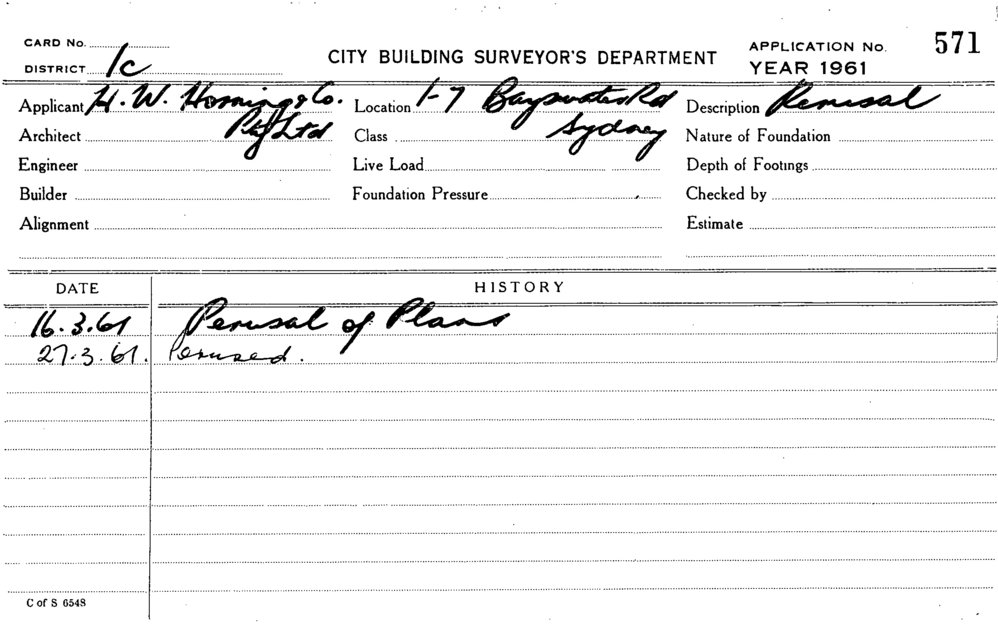 CARD No.
DISTRICT 1c
CITY BUILDING SURVEYOR'S DEPARTMENT
APPLICATION No. 571
YEAR 1961
Applicant H. W. Horning & Co. Location 1-7 Bayswater Rd Description Perusal
Architect Pty Ltd Class Sydney Nature of Foundation
Engineer Live Load Depth of Footings
Builder Foundation Pressure Checked by
Alignment Estimate
DATE HISTORY
16.3.61 Perusal of Plans
27.3.61. Perused.
C of S 6548